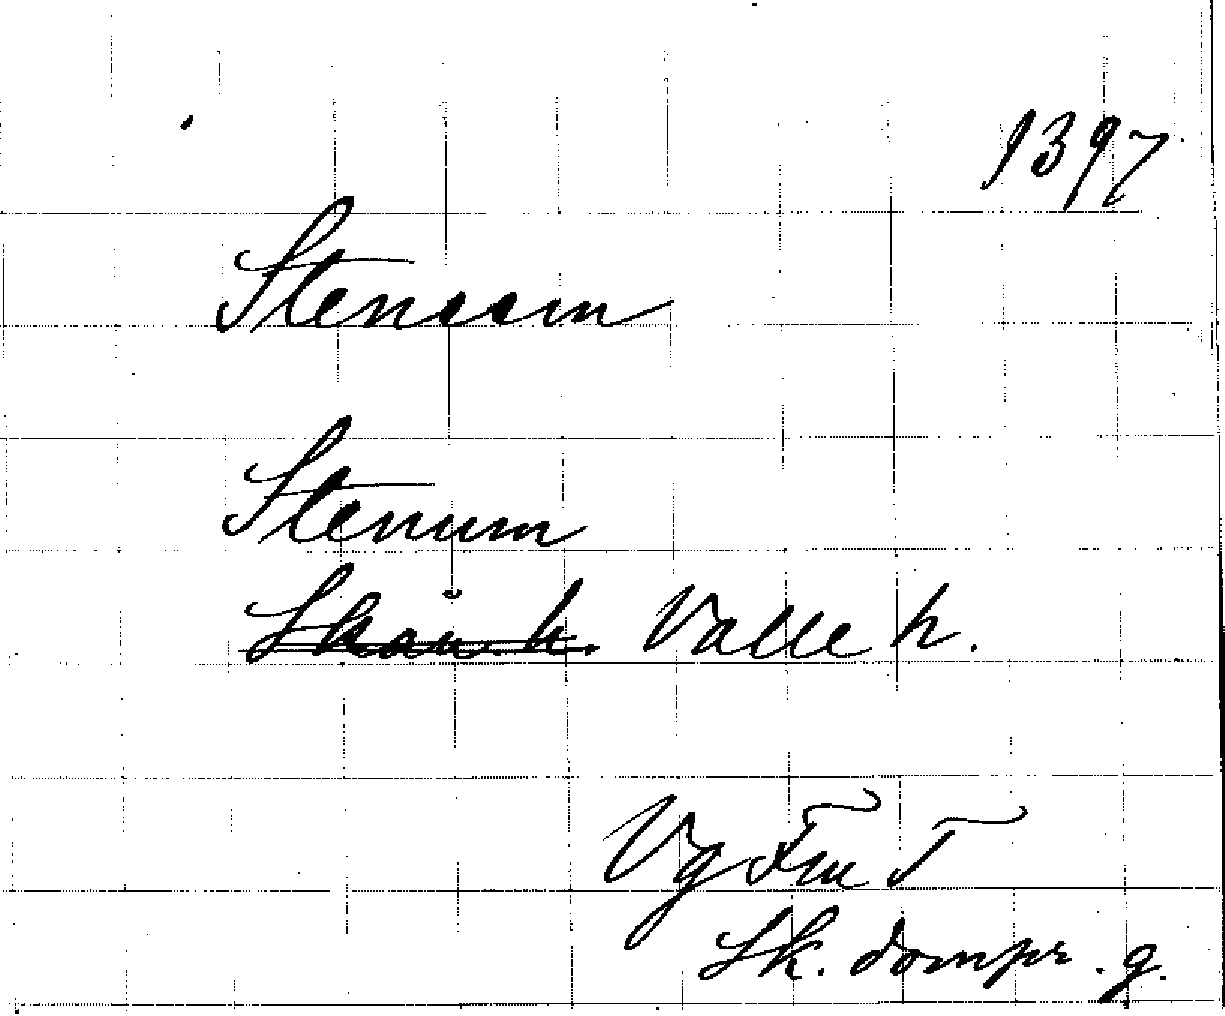 1397
Steneem
Stenum
Skån. h. Valle h.
Vg Fm T
Sk. dompr. g.